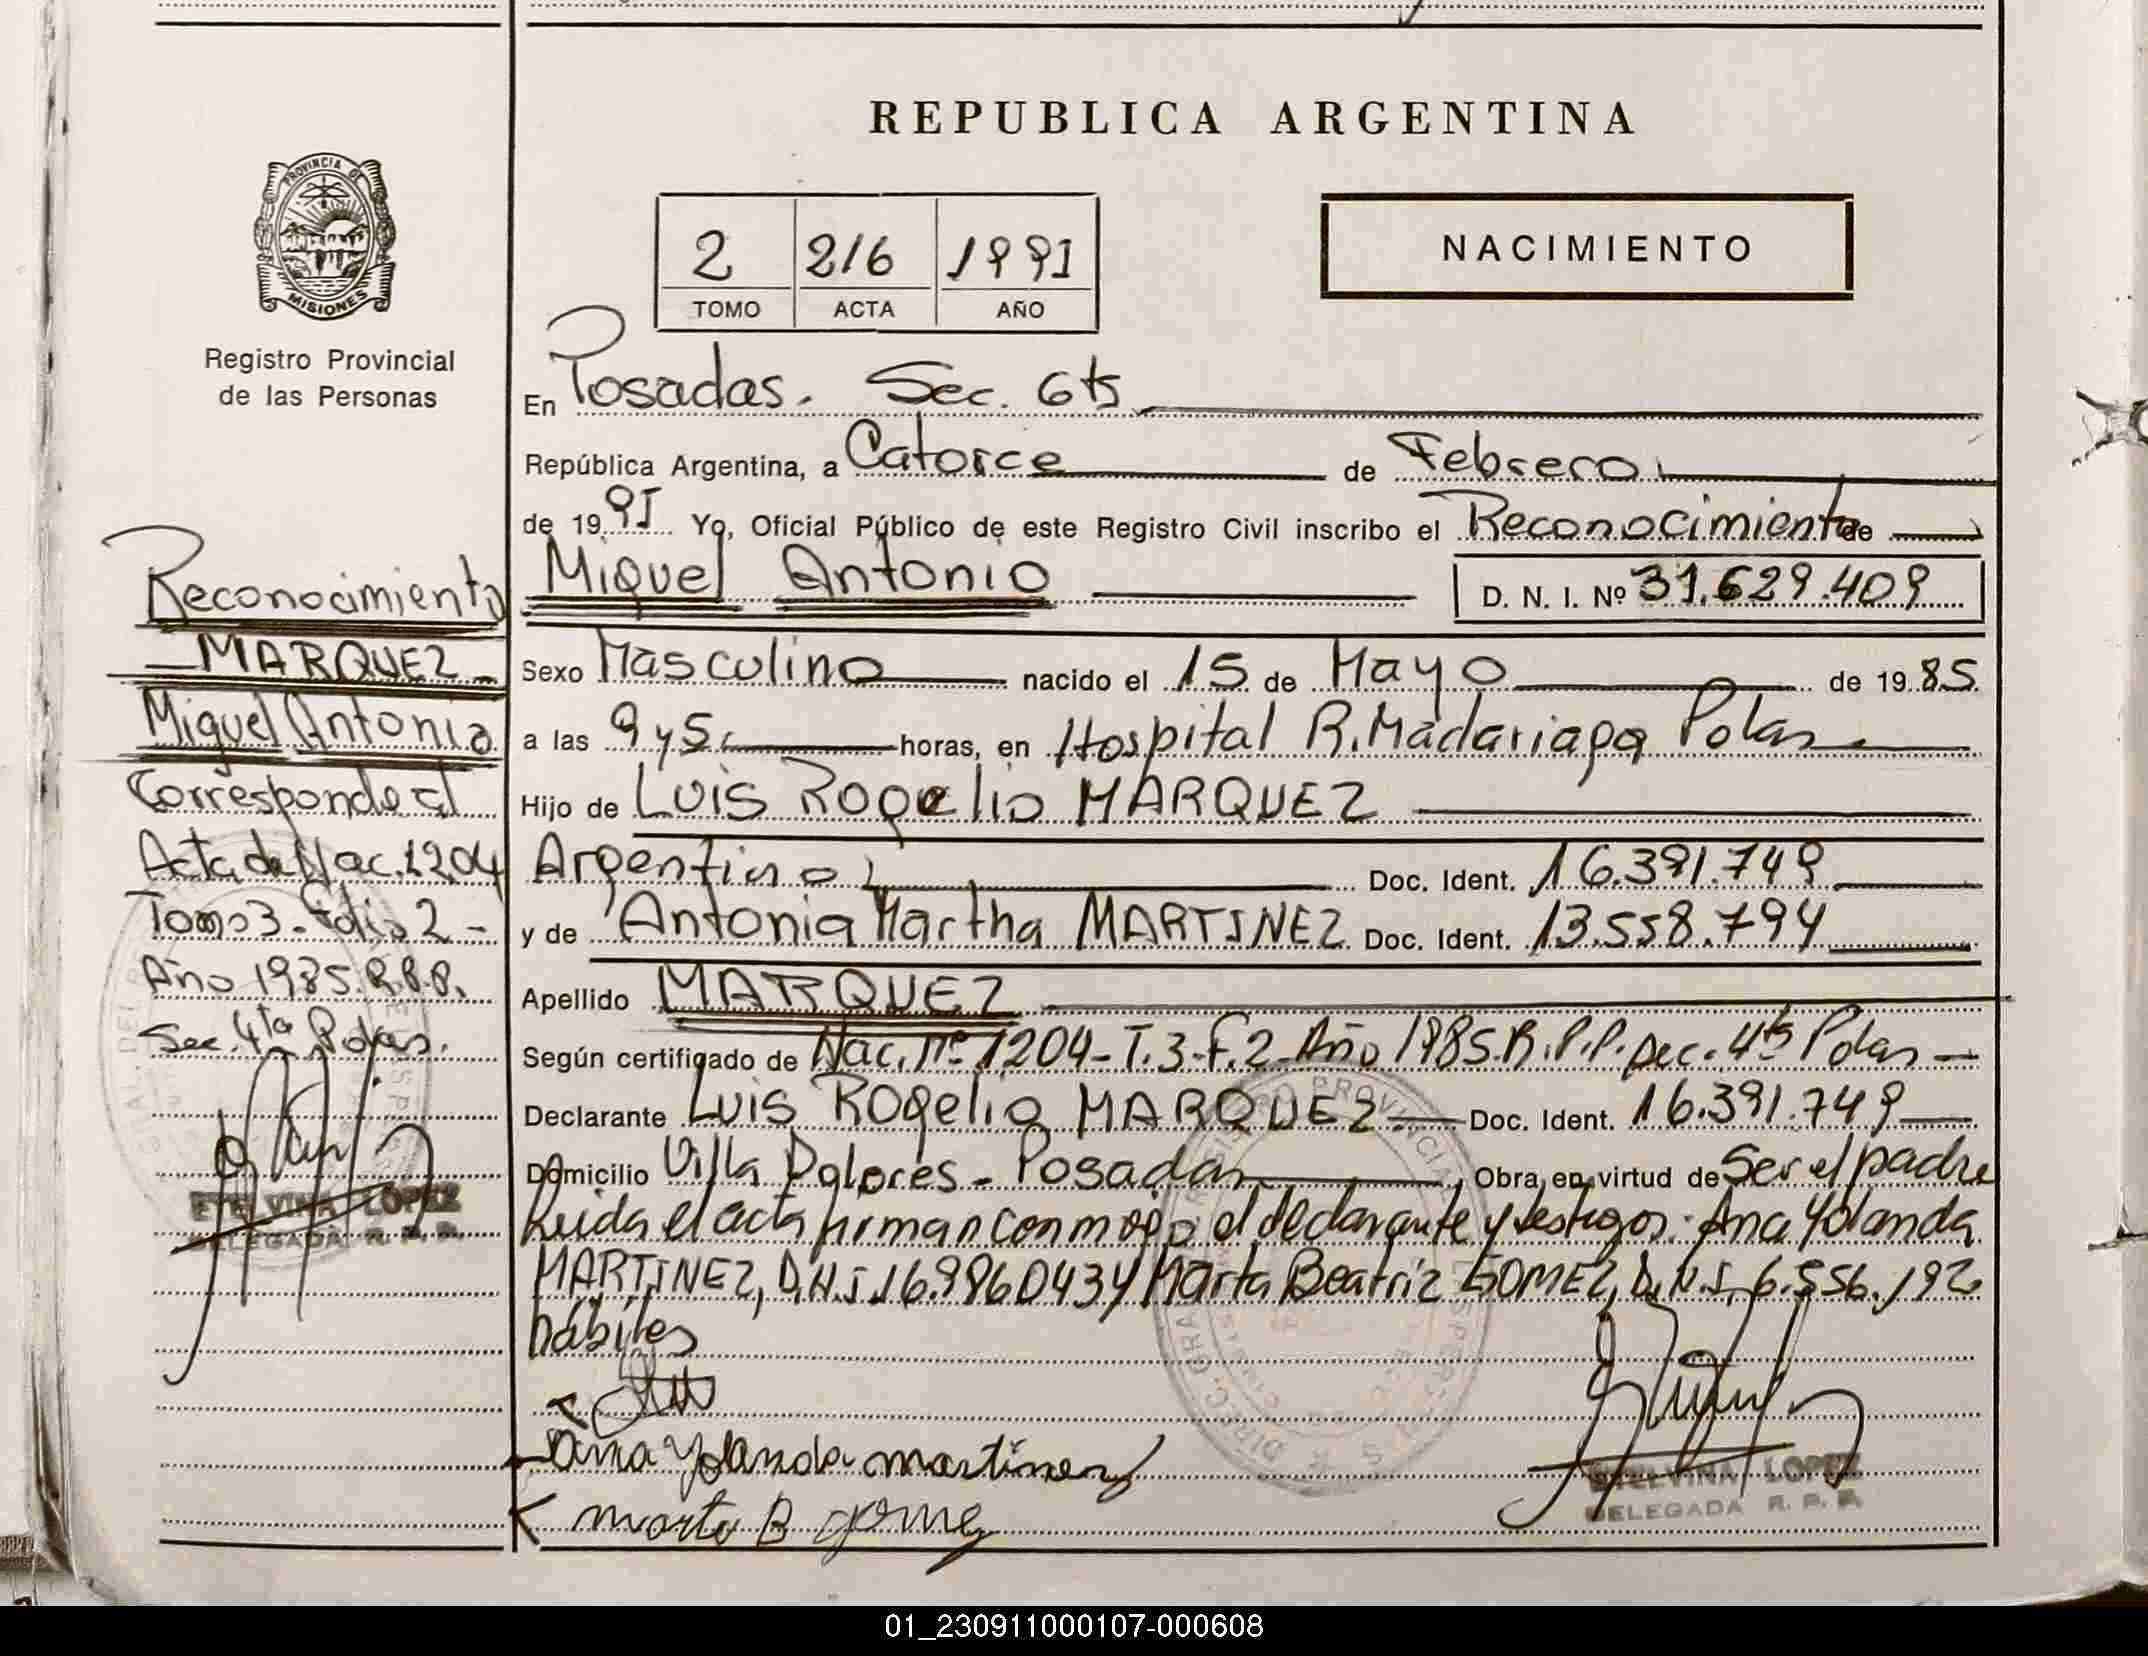 REPUBLICA ARGENTINA
PROVINCIA DE
MISIONES
Registro Provincial
de las Personas
2 216 1991
TOMO ACTA AÑO
NACIMIENTO
En Posadas. Sec. 6ta
República Argentina, a Catorce de Febrero
de 1991 Yo, Oficial Público de este Registro Civil inscribo el Reconocimiento de
Miguel Antonio D. N. I. Nº 31.629.409
Sexo Masculino nacido el 15 de Mayo de 1985
a las 9 y 5 horas, en Hospital R. Madariaga Pdas
Hijo de Luis Rogelio MARQUEZ
Argentino Doc. Ident. 16.391.749
y de Antonia Martha MARTINEZ Doc. Ident. 13.558.794
Apellido MARQUEZ
Según certificado de Nac. Nº 1204 - T. 3 - F. 2 - Año 1985. R. P. P. Sec. 4ta Pdas
Declarante Luis Rogelio MARQUEZ Doc. Ident. 16.391.749
Domicilio Villa Dolores - Posadas Obra en virtud de Ser el padre
Leida el acta firman conmigo el declarante y testigos: Ana Yolanda
MARTINEZ, D.N.I. 16.986043 y Marta Beatriz GOMEZ, D.N.I. 6.556.192
hábiles
Ana Yolanda martinez
marta B gomez
ETELVINA LOPEZ
DELEGADA R. P. P.
Reconocimiento
MARQUEZ
Miguel Antonio
Corresponde al
Acta de Nac. 1204
Tomo 3 - Folio 2 -
Año 1985. R.P.P.
Sec. 4ta Pdas.
ETELVINA LOPEZ
DELEGADA R. P. P.
01_230911000107-000608